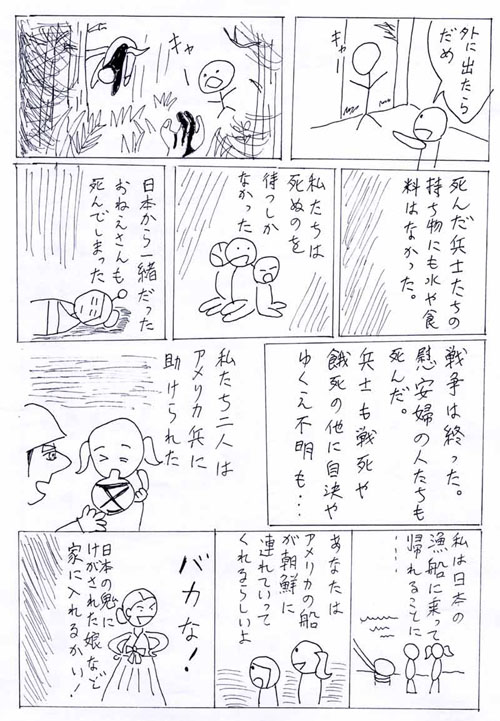 外に出たら
だめ
キャー
キャー
死んだ兵士たちの
持ち物にも水や食
料はなかった。
私たちは
死ぬのを
待つしか
なかった
日本から一緒だった
おねえさんも
死んでしまった
戦争は終った。
慰安婦の人たちも
死んだ。
兵士も戦死や
餓死の他に自決や
ゆくえ不明も・・・
私たち二人は
アメリカ兵に
助けられた
私は日本の
漁船に乗って
帰れることに
・・・・
あなたは
アメリカの船
が朝鮮に
連れていって
くれるらしいよ
バカな!
日本の鬼に
けがされた娘など
家に入れるかい!